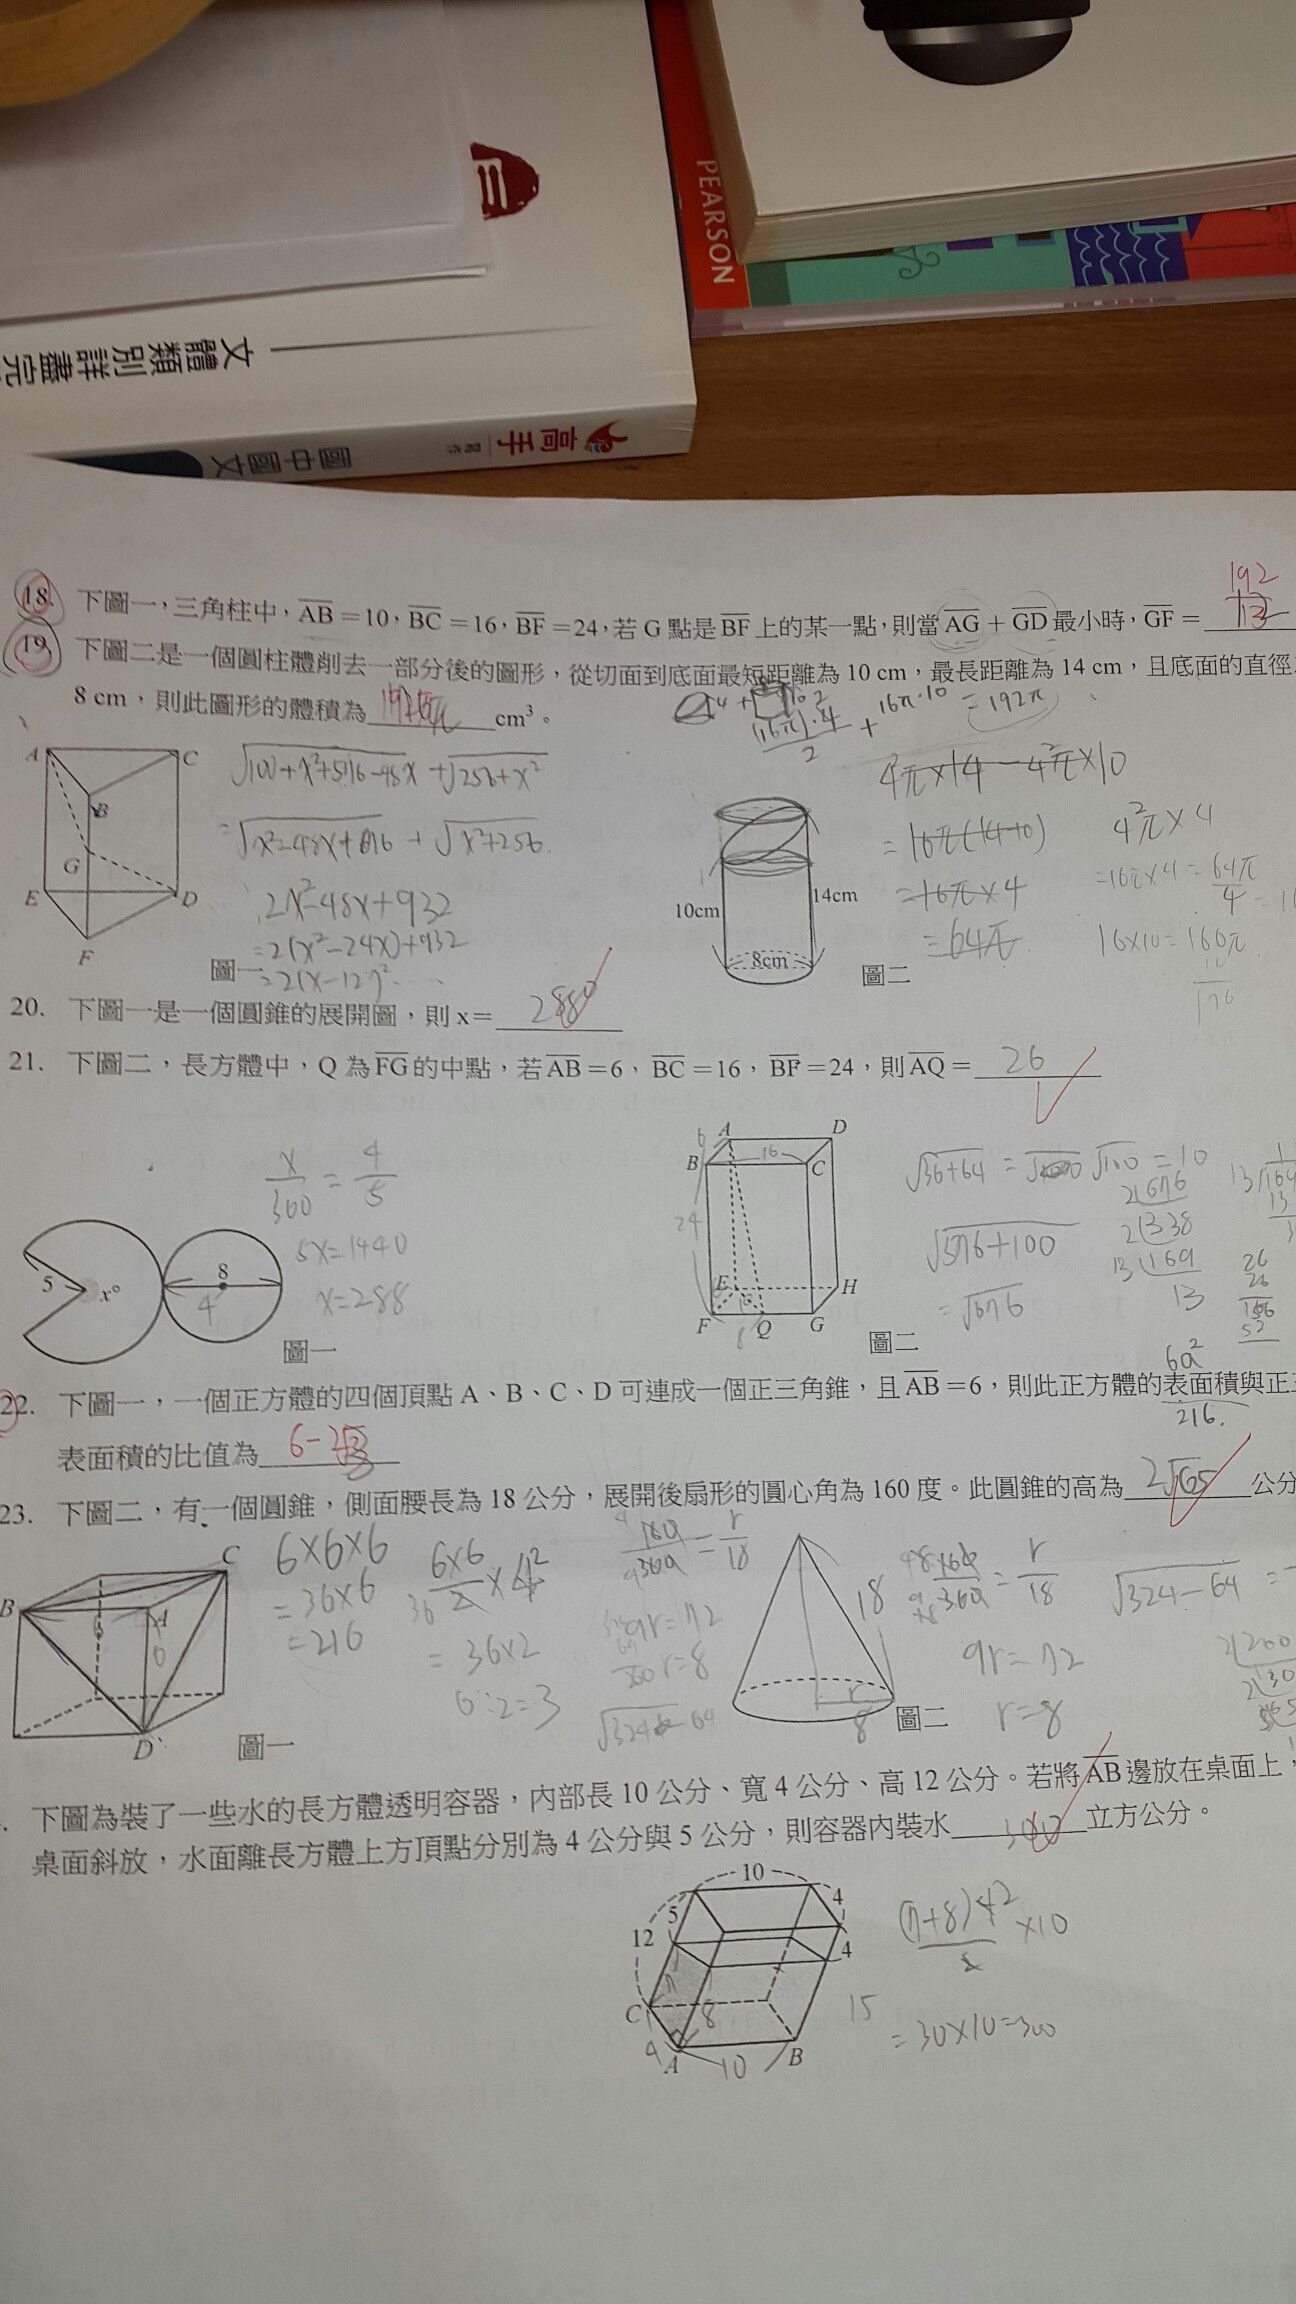 PEARSON
文體類別詳盡完
高手
國中國文
18. 下圖一，三角柱中，AB=10，BC=16，BF=24，若 G 點是 BF 上的某一點，則當 AG + GD 最小時，GF = 192/13
19. 下圖二是一個圓柱體削去一部分後的圖形，從切面到底面最短距離為 10 cm，最長距離為 14 cm，且底面的直徑
8 cm，則此圖形的體積為 192π cm³。
(16π)·4/2 + 16π·10 = 192π
√100+x²+576-48x + √256+x²
=√x²-48x+676 + √x²+256
2x²-48x+932
=2(x²-24x)+932
=2(x-12)²....
4π×14 - 4²π×10
=16π(14-10)
=16π×4
=64π
4²π×4
=16π×4=64π/4
16×10=160π
176
A C B G E D F
圖一
10cm 14cm 8cm
圖二
20. 下圖一是一個圓錐的展開圖，則 x= 288°
21. 下圖二，長方體中，Q 為 FG 的中點，若 AB=6，BC=16，BF=24，則 AQ= 26
x/360 = 4/5
5x=1440
x=288
5 x° 8 4
圖一
6 A D B 16 C 24 E H F 8 Q G
圖二
√36+64 = √100 = 10
√576+100
=√676
2 676
2 338
13 169
13
6a²
22. 下圖一，一個正方體的四個頂點 A、B、C、D 可連成一個正三角錐，且 AB=6，則此正方體的表面積與正三
216.
表面積的比值為 6-2√3
23. 下圖二，有一個圓錐，側面腰長為 18 公分，展開後扇形的圓心角為 160 度。此圓錐的高為 2√65 公分
6×6×6
=36×6
=216
6×6/2 ×4
=36×2
6÷2=3
160/360 = r/18
9r=72
r=8
√324-64
B C A 6 D
圖一
18 r 8
圖二
160/360 = r/18
9r=72
r=8
√324-64 =
下圖為裝了一些水的長方體透明容器，內部長 10 公分、寬 4 公分、高 12 公分。若將 AB 邊放在桌面上，
桌面斜放，水面離長方體上方頂點分別為 4 公分與 5 公分，則容器內裝水 300 立方公分。
10 5 4 12 4 7 C 8 4 A 10 B
(7+8)4/2 ×10
15
=30×10=300